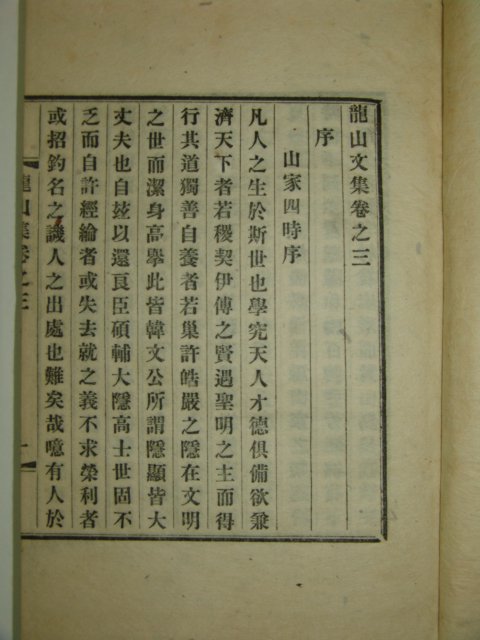 龍山文集卷之三
序
山家四時序
凡人之生於斯世也學究天人才德俱備欲兼
濟天下者若稷契伊傅之賢遇聖明之主而得
行其道獨善自養者若巢許皓嚴之隱在文明
之世而潔身高擧此皆韓文公所謂隱顯皆大
丈夫也自玆以還良臣碩輔大隱高士世固不
乏而自許經綸者或失去就之義不求榮利者
或招釣名之譏人之出處也難矣哉噫有人於
龍山集卷之三
一